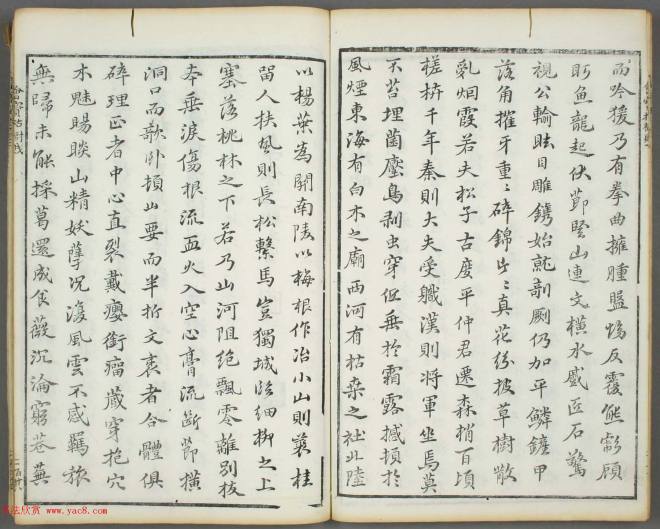 而吟猨乃有拳曲擁腫盤坳反覆熊彪顧
盼魚龍起伏節竪山連文橫水蹙匠石驚
視公輸眩目雕鐫始就剞劂仍加平鱗鏟甲
落角摧牙重〻碎錦片〻真花紛披草樹散
亂烟霞若夫松子古度平仲君遷森梢百頃
槎枿千年秦則大夫受職漢則將軍坐焉莫
不苔埋菌壓鳥剥虫穿低垂於霜露撼頓於
風煙東海有白木之廟西河有枯桒之社北陸
以楊葉為關南陵以梅根作冶小山則叢桂
留人扶風則長松繫馬豈獨城臨細柳之上
塞落桃林之下若乃山河阻絶飄零離別拔
本垂淚傷根流血火入空心膏流斷節橫
洞口而欹卧頓山要而半折文衺者合體俱
碎理正者中心直裂戴癭銜瘤藏穿抱穴
木魅睗睒山精妖孽況復風雲不感羈旅
無歸未能採葛還成食薇沉淪窮巷蕪
书法欣赏 www.yac8.com